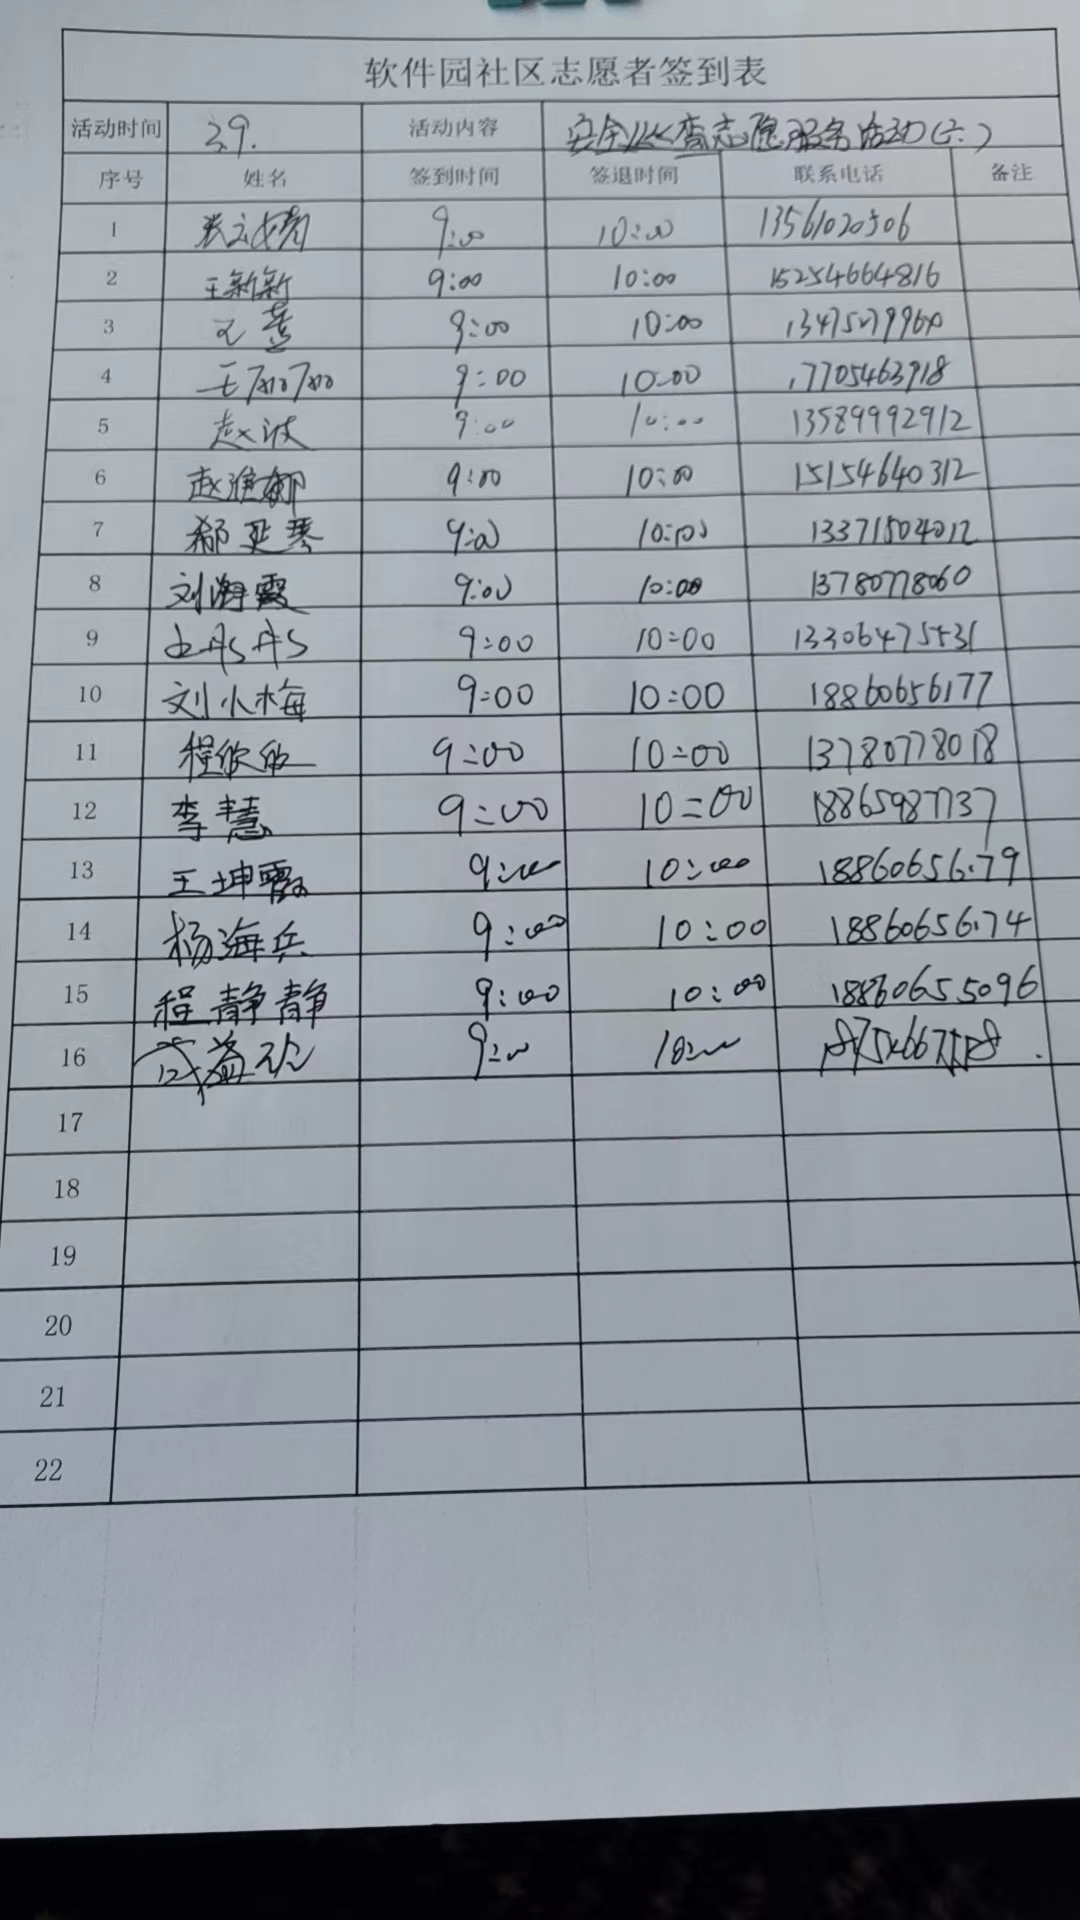 软件园社区志愿者签到表
活动时间 3.9. 活动内容 安全巡查志愿服务活动(六)
序号 姓名 签到时间 签退时间 联系电话 备注
1 9:00 10:00 13561020506
2 王新新 9:00 10:00 15254664816
3 9:00 10:00
4 王娜娜 9:00 10:00 17705463918
5 赵波 9:00 10:00 13589992912
6 9:00 10:00 15154640312
7 郝延琴 9:00 10:00 13371504012
8 刘海霞 9:00 10:00 13780778060
9 9:00 10:00 13306475431
10 刘小梅 9:00 10:00 18860656177
11 程欣欣 9:00 10:00 13780778018
12 李慧 9:00 10:00 18865987737
13 王坤霞 9:00 10:00 18860656179
14 杨海兵 9:00 10:00 18860656174
15 程静静 9:00 10:00 18860655096
16 9:00 10:00
17
18
19
20
21
22